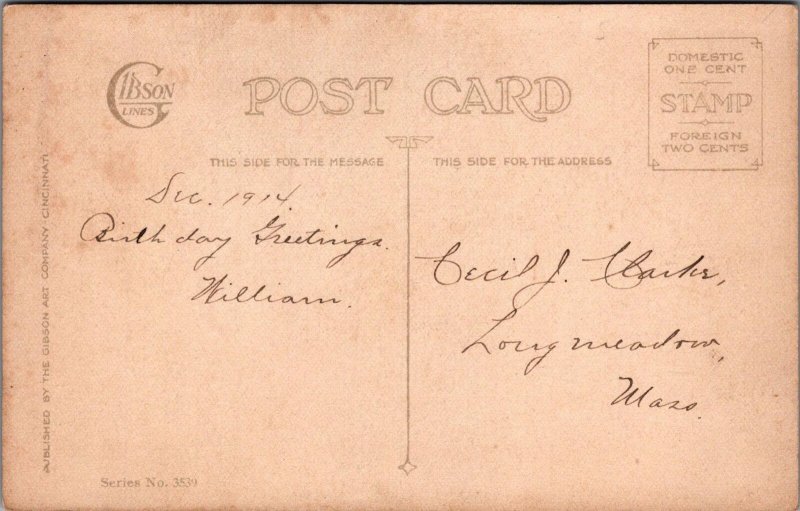 GIBSON
LINES
POST CARD
DOMESTIC
ONE CENT
STAMP
FOREIGN
TWO CENTS
THIS SIDE FOR THE MESSAGE
THIS SIDE FOR THE ADDRESS
Dec. 1914.
Birthday Greetings.
William.
Cecil J. Clarke,
Longmeadow,
Mass.
PUBLISHED BY THE GIBSON ART COMPANY · CINCINNATI
Series No. 3539